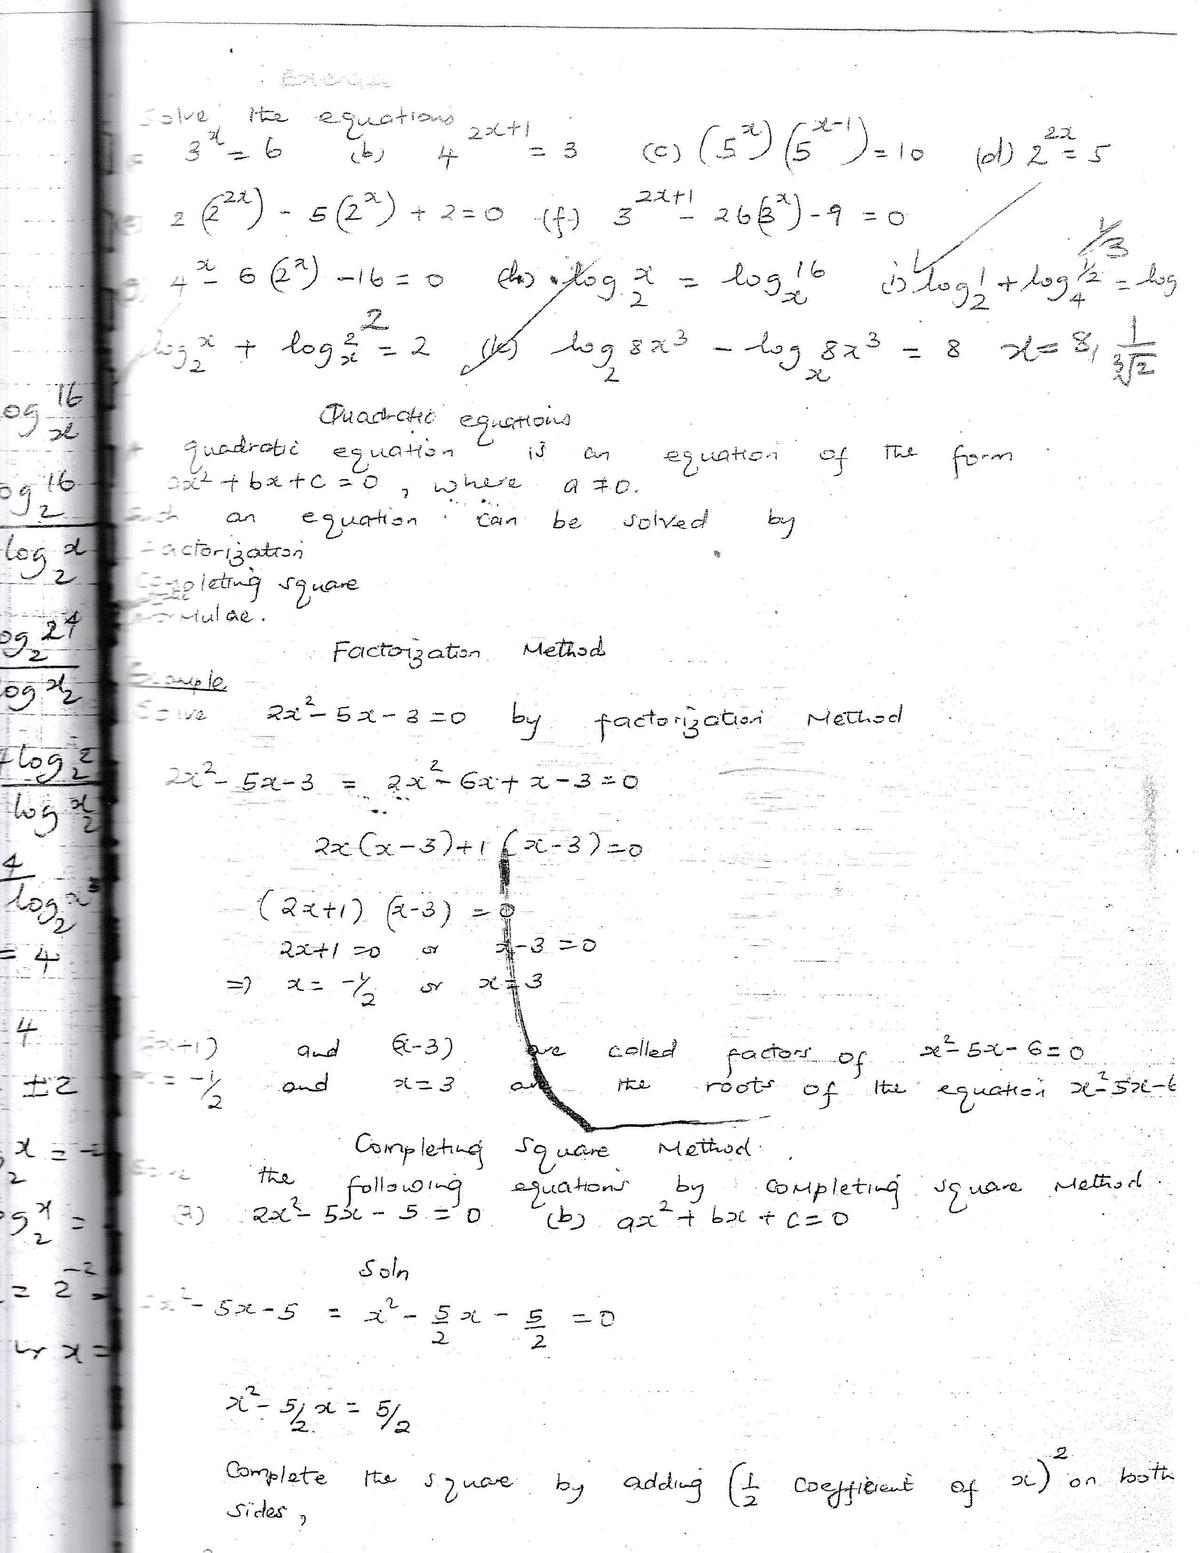 Exercise
Solve the equations
3^x = 6 (b) 4^{2x+1} = 3 (c) (5^x)(5^{x-1}) = 10 (d) 2^{2x} = 5
2(2^{2x}) - 5(2^x) + 2 = 0 (f) 3^{2x+1} - 26(3^x) - 9 = 0
4^x - 6(2^x) - 16 = 0 (h) log_2 x = log_x 16 i) log_2 1 + log_4 1/2 = log 1/3
log_2 x + log_x 2 = 2 (k) log_2 8x^3 - log_x 8x^3 = 8 x = 8, 1/∛2
Quadratic equations
quadratic equation is an equation of the form
ax^2 + bx + c = 0, where a ≠ 0.
Such an equation can be solved by
Factorization
Completing square
formulae.
Factorization Method
Example
Solve 2x^2 - 5x - 3 = 0 by factorization Method
2x^2 - 5x - 3 = 2x^2 - 6x + x - 3 = 0
2x(x-3) + 1(x-3) = 0
(2x+1)(x-3) = 0
2x+1 = 0 or x-3 = 0
=> x = -1/2 or x = 3
and (x-3) are called factors of x^2 - 5x - 6 = 0
x = -1/2 and x = 3 are the roots of the equation x^2 - 5x - 6
Completing Square Method.
Solve the following equations by completing square Method.
(a) 2x^2 - 5x - 5 = 0 (b) ax^2 + bx + c = 0
Soln
2x^2 - 5x - 5 = x^2 - 5/2 x - 5/2 = 0
x^2 - 5/2 x = 5/2
Complete the square by adding (1/2 coefficient of x)^2 on both
sides,